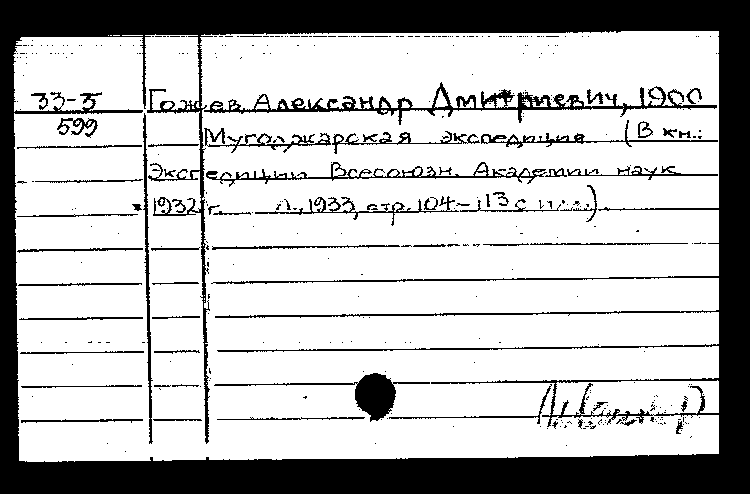 33-5 Гожев, Александр Дмитриевич, 1900
599 Мугоджарская экспедиция (В кн.:
Экспедиции Всесоюзн. Академии наук
1932 г. Л., 1933, стр. 104-113 с илл.).